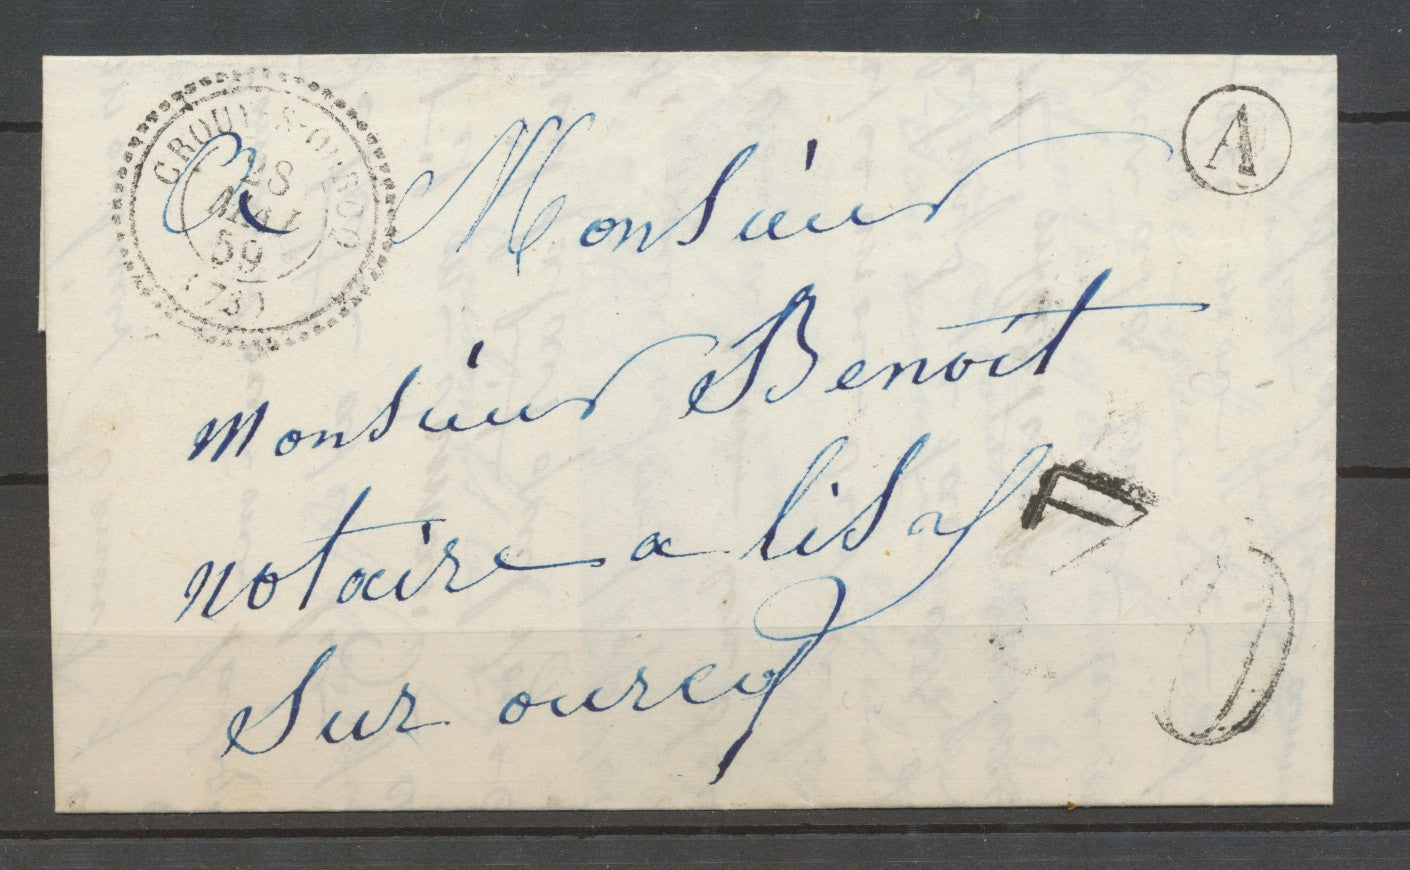 CROUY-S-OURCQ
28
MAI
59
(73)
A
A Monsieur
monsieur Benoit
notaire a lisy
sur ourcq